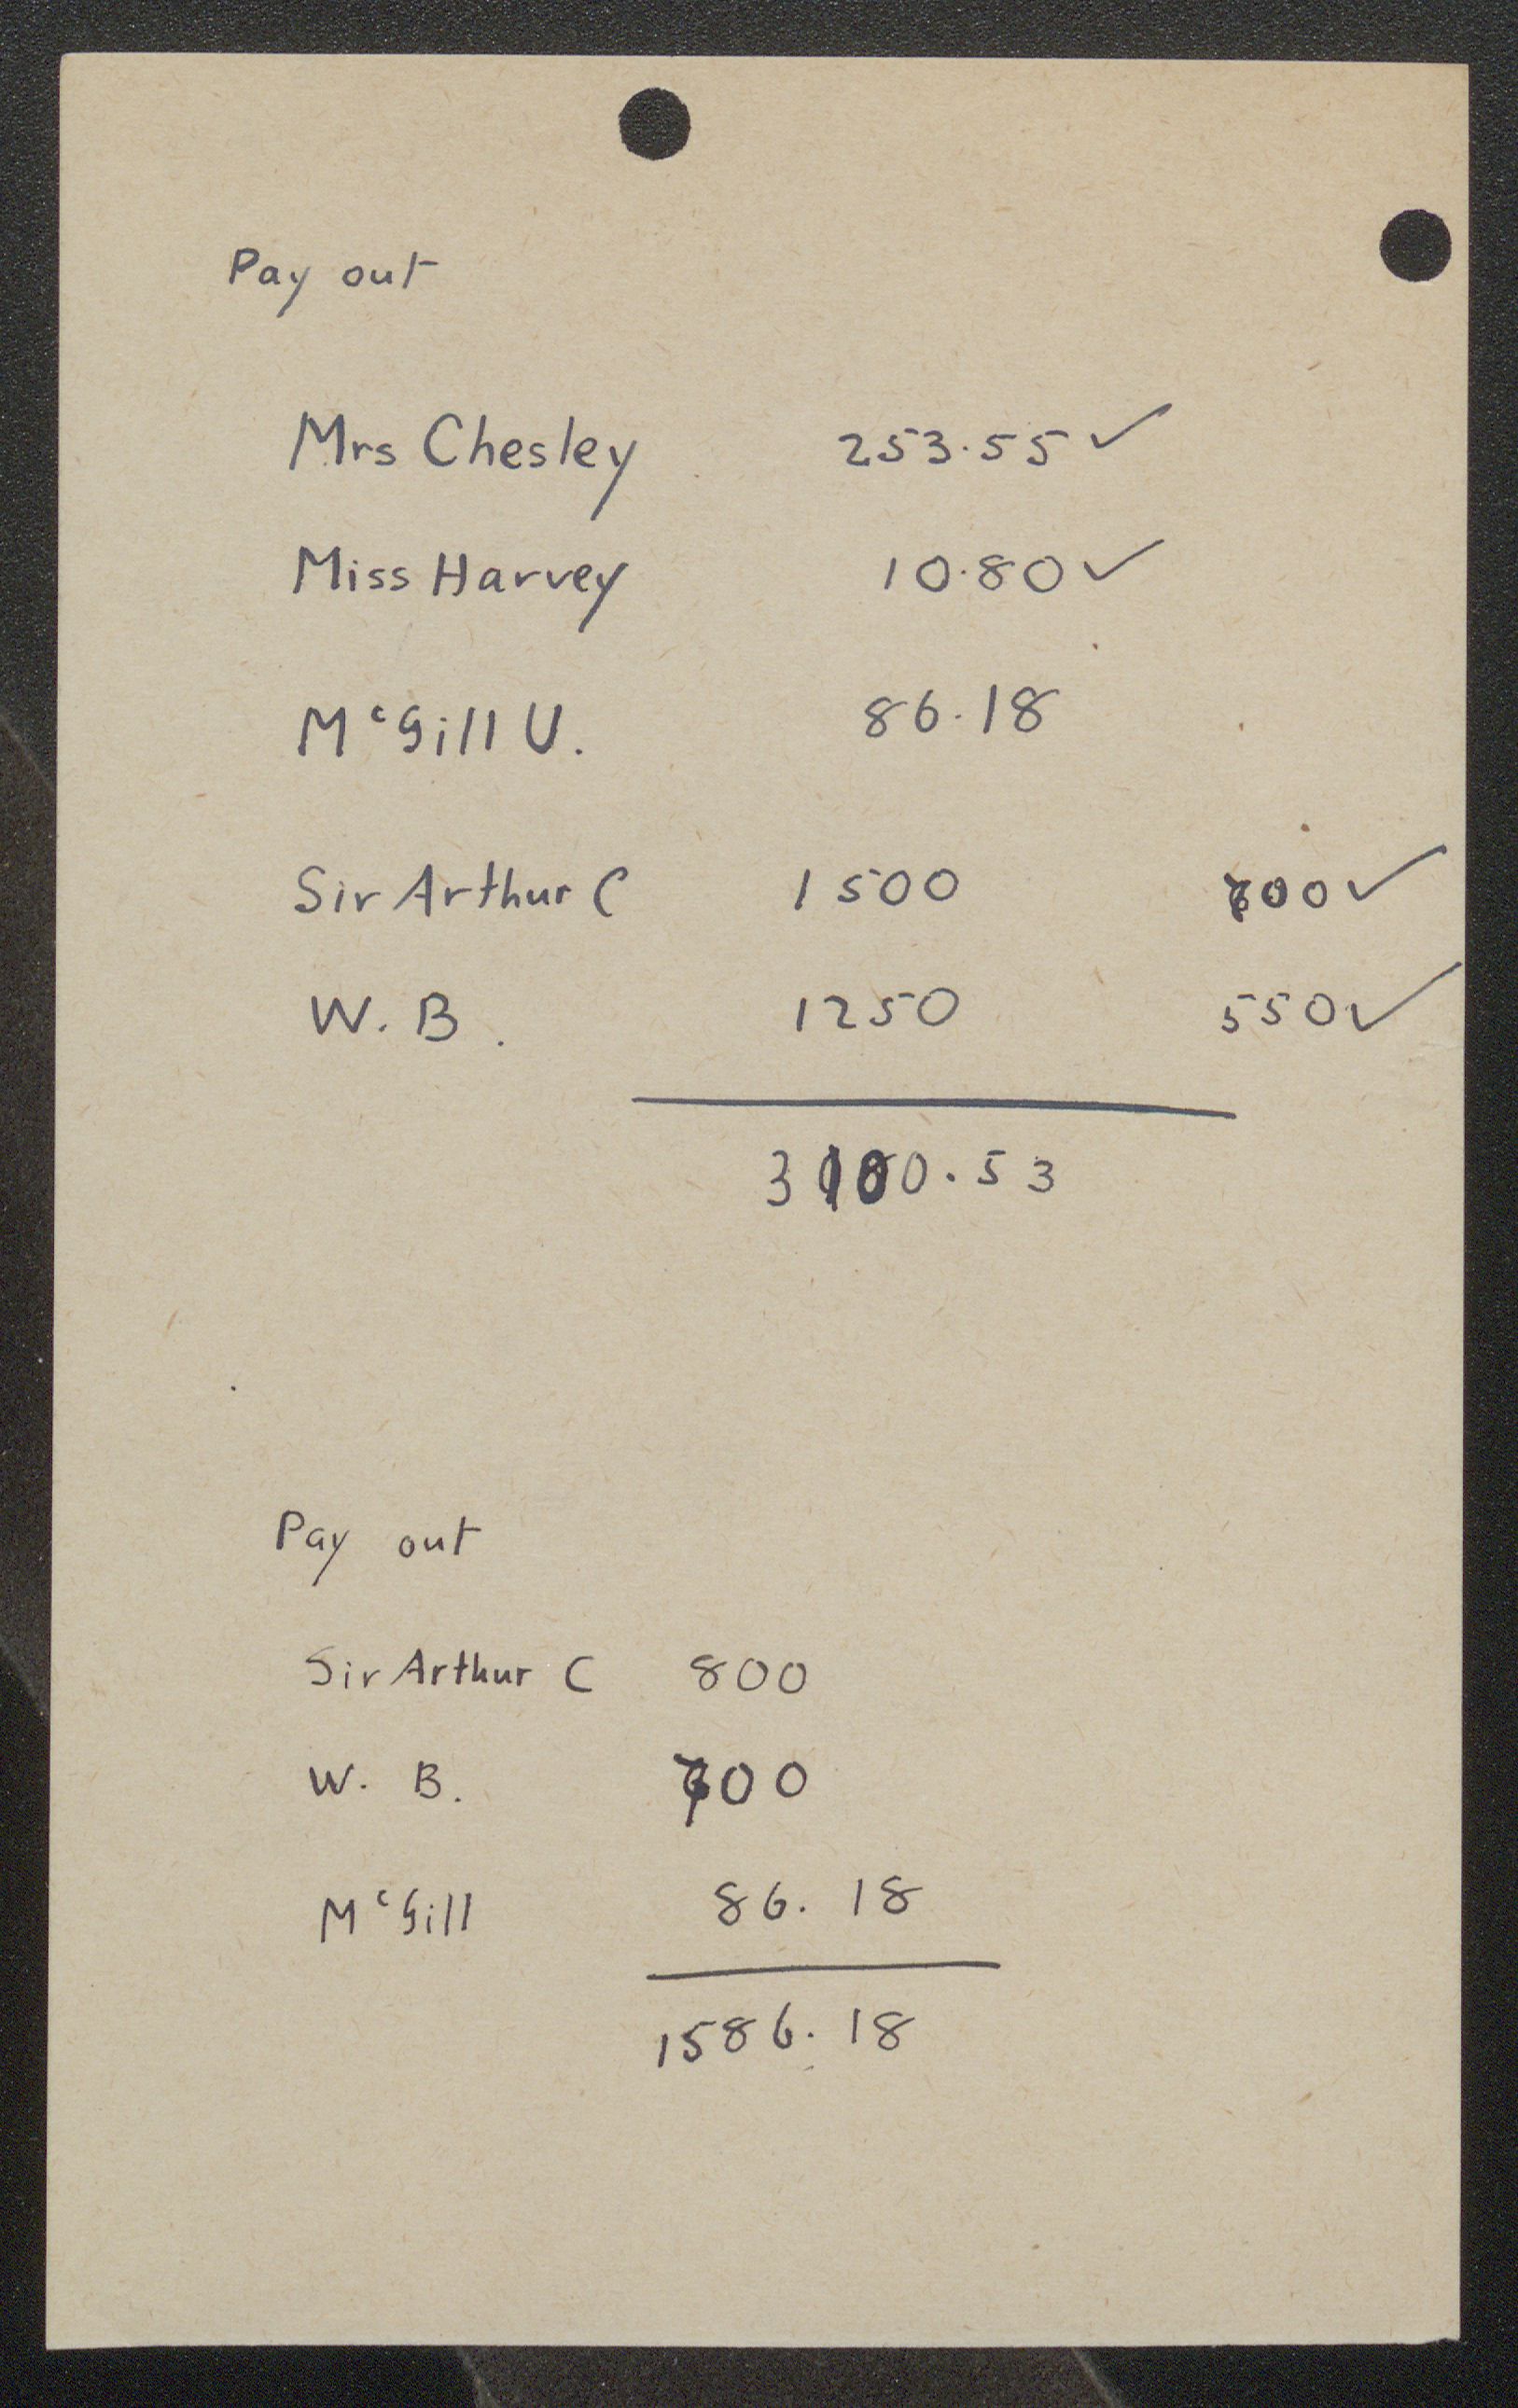 Pay out
Mrs Chesley 253.55 ✓
Miss Harvey 10.80 ✓
McGill U. 86.18
Sir Arthur C 1500 700 ✓
W. B. 1250 550 ✓
3100.53
Pay out
Sir Arthur C 800
W. B. 700
McGill 86.18
1586.18